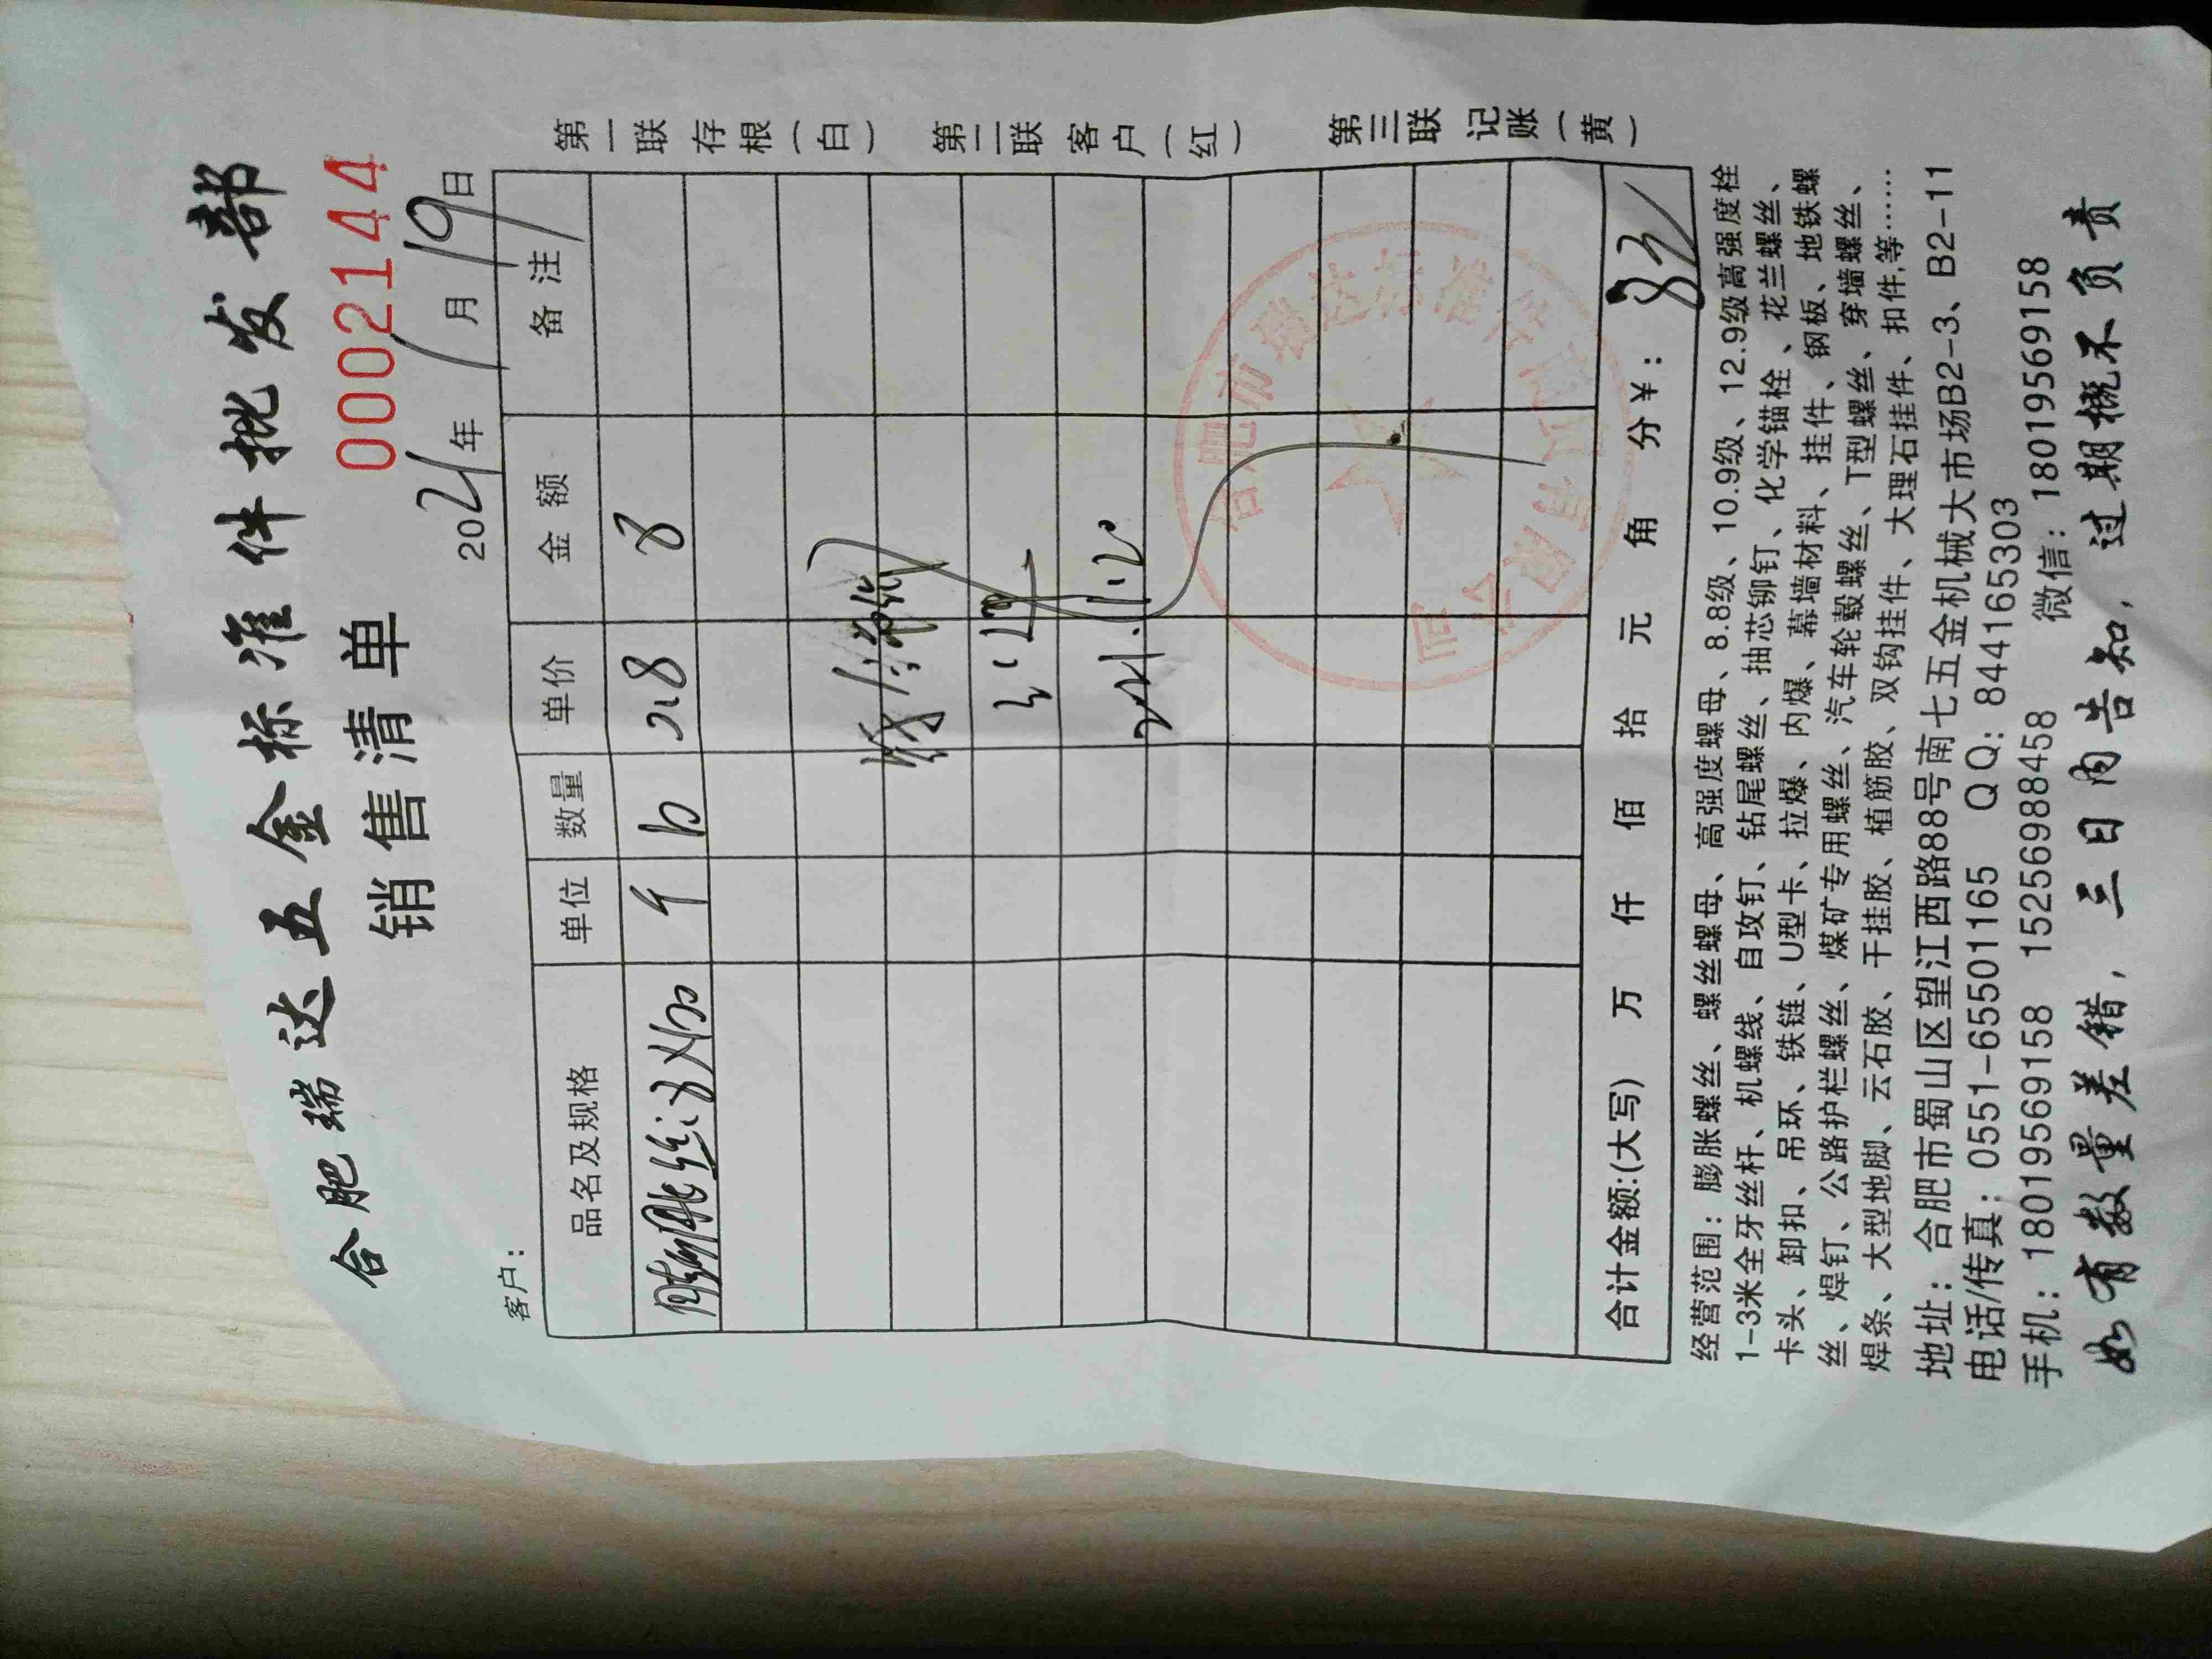 合肥瑞达五金标准件批发部
销售清单 0002144
客户: 2021年1月19日
品名及规格 单位 数量 单价 金额 备注
膨胀丝 个 8
2021.1.20
合计金额:(大写) 万 仟 佰 拾 元 角 分¥:
第一联 存根(白) 第二联 客户(红) 第三联 记账(黄)
经营范围:膨胀螺丝、螺丝螺母、高强度螺母、8.8级、10.9级、12.9级高强度栓
1-3米全牙丝杆、机螺线、自攻钉、钻尾螺丝、抽芯铆钉、化学锚栓、花兰螺丝、
卡头、卸扣、吊环、铁链、U型卡、拉爆、内爆、幕墙材料、挂件、钢板、地铁螺
丝、焊钉、公路护栏螺丝、煤矿专用螺丝、汽车轮毂螺丝、T型螺丝、穿墙螺丝、
焊条、大型地脚、云石胶、干挂胶、植筋胶、双钩挂件、大理石挂件、扣件,等……
地址:合肥市蜀山区望江西路88号南七五金机械大市场B2-3、B2-11
电话/传真:0551-65501165 QQ:844165303
手机:18019569158 15256988458 微信:18019569158
如有数量差错,三日内告知,过期概不负责